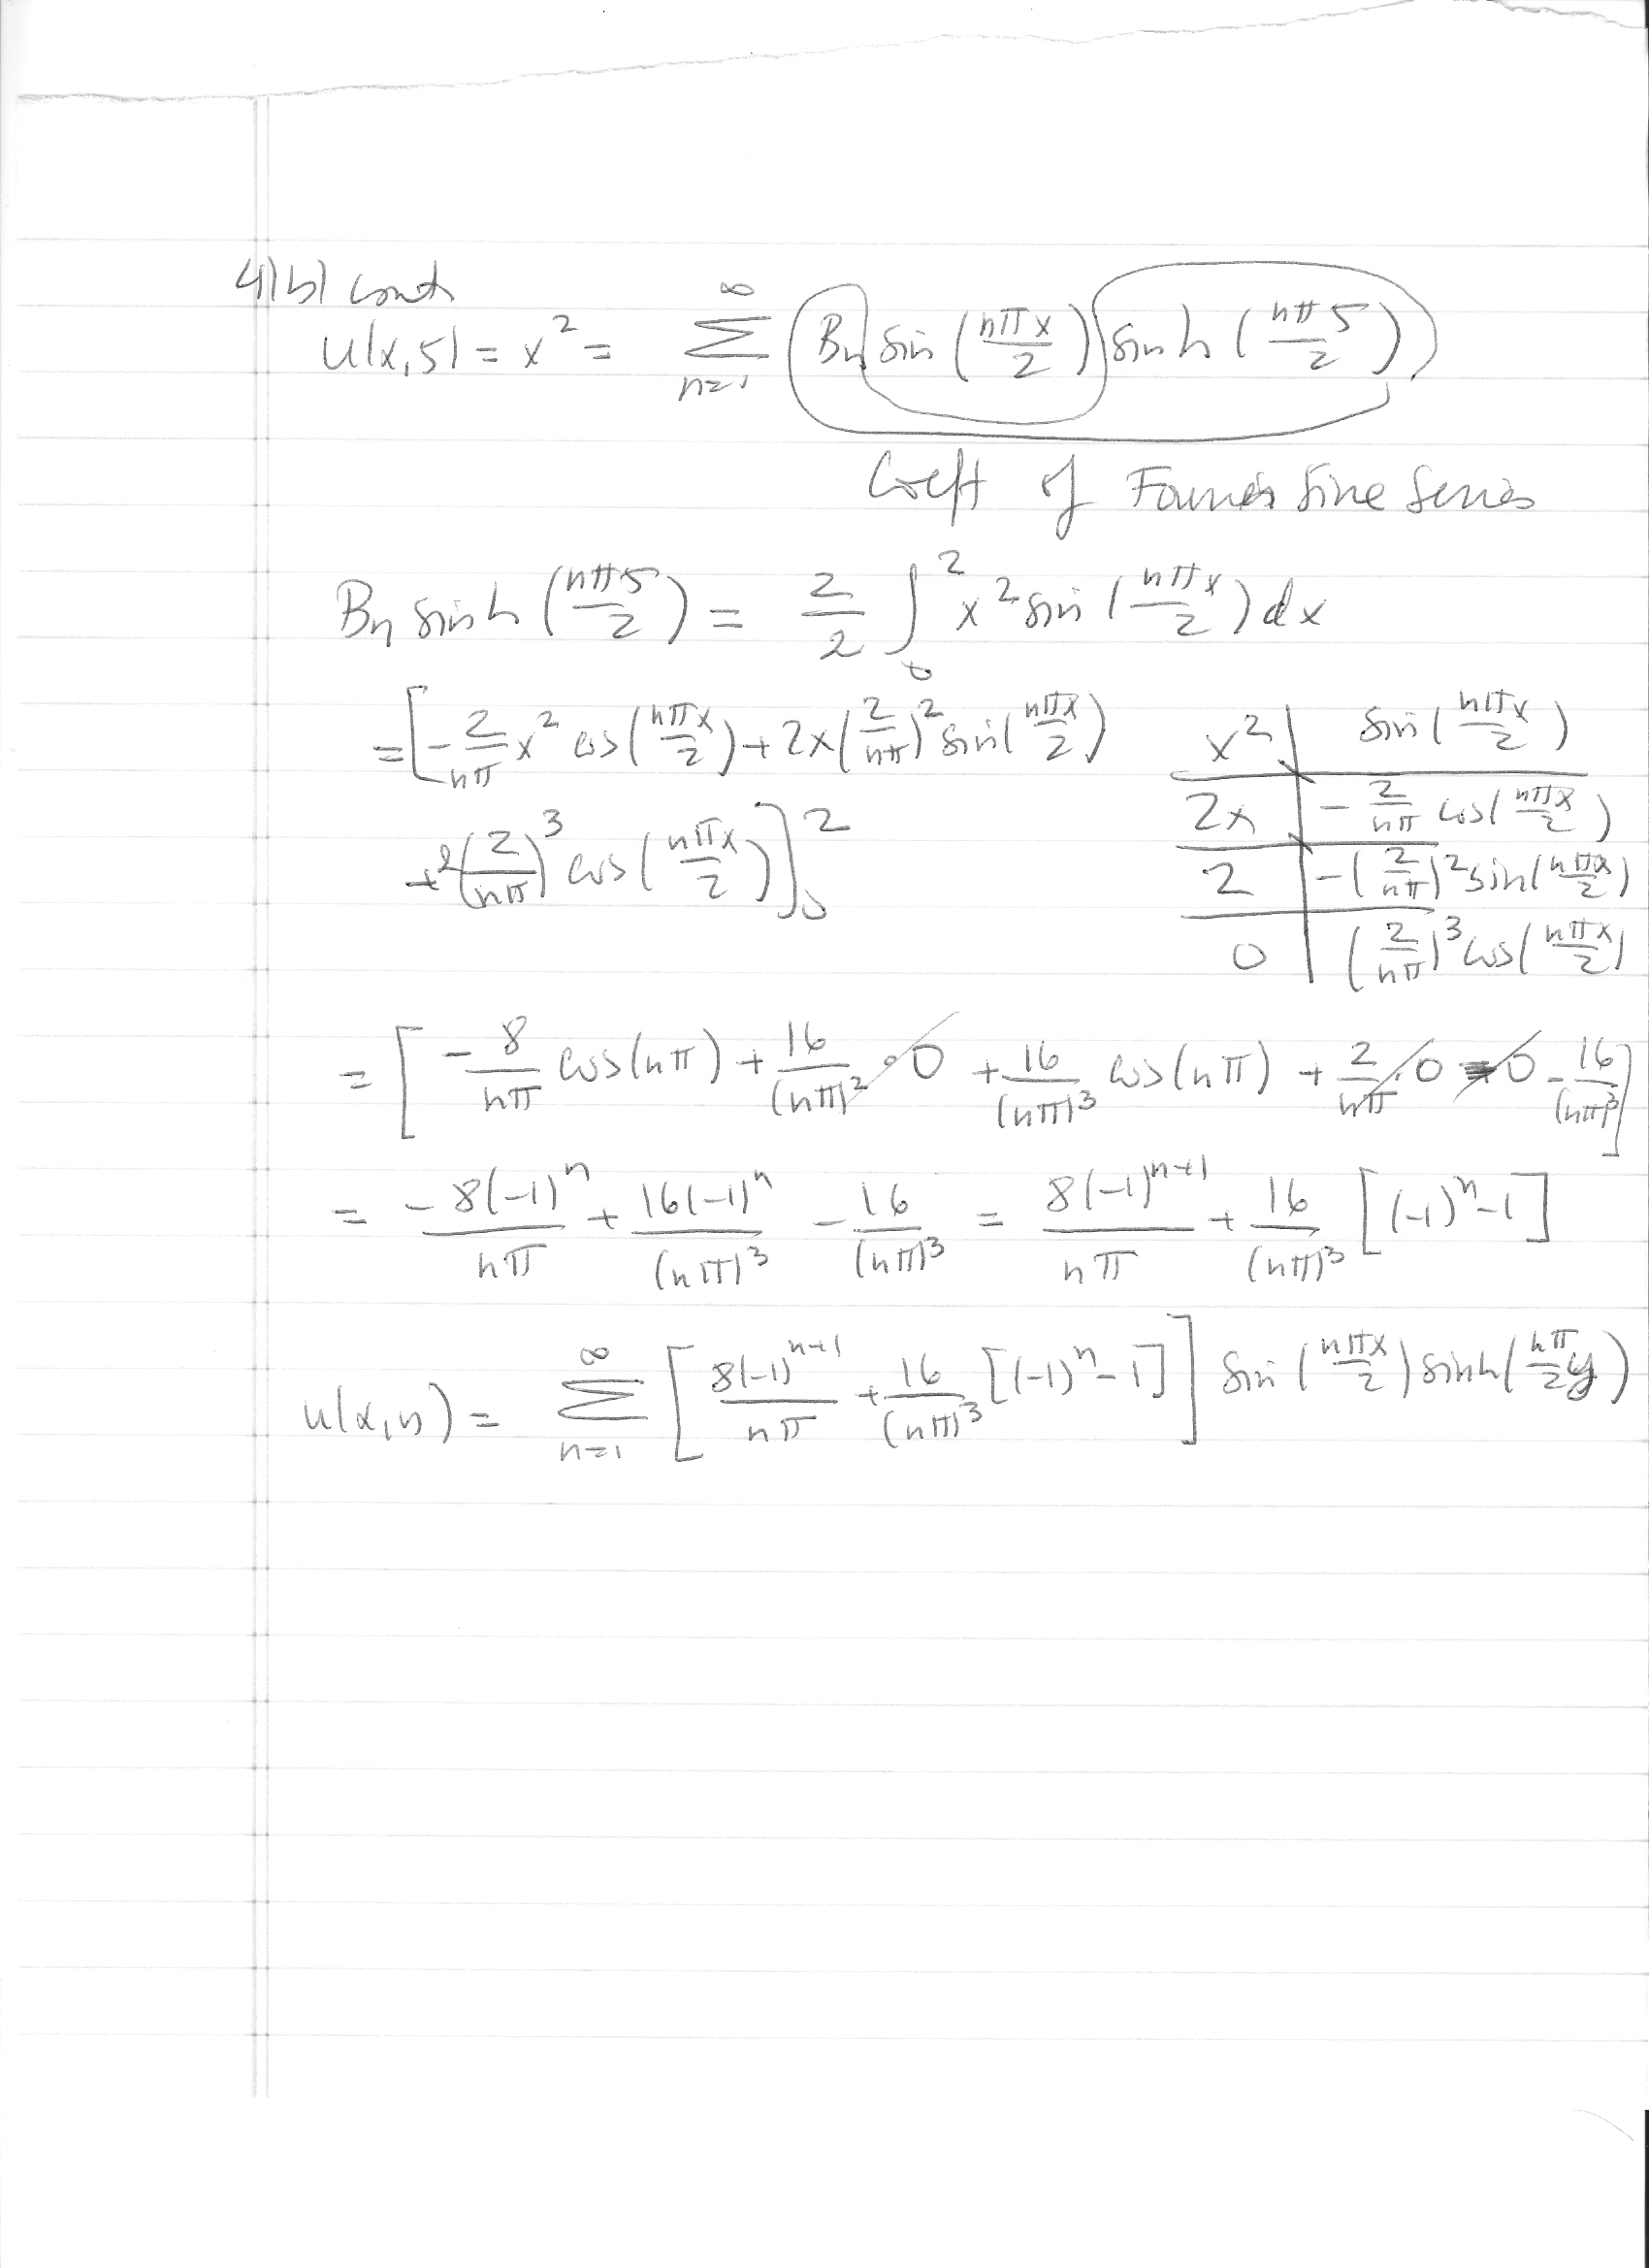 4)b) cont
u(x,5) = x² = ∞ Σ n=1 (Bn sin(nπx/2) sinh(nπ5/2))
Coeff of Fourier Sine Series
Bn sinh(nπ5/2) = 2/2 ∫₀² x² sin(nπx/2) dx
= [-2/nπ x² cos(nπx/2) + 2x(2/nπ)² sin(nπx/2)
+2(2/nπ)³ cos(nπx/2)]₀²
x² | sin(nπx/2)
2x | -2/nπ cos(nπx/2)
2 | -(2/nπ)² sin(nπx/2)
0 | (2/nπ)³ cos(nπx/2)
= [-8/nπ cos(nπ) + 16/(nπ)² · 0 + 16/(nπ)³ cos(nπ) + 2/nπ · 0 - 0 - 16/(nπ)³]
= -8(-1)ⁿ/nπ + 16(-1)ⁿ/(nπ)³ - 16/(nπ)³ = 8(-1)ⁿ⁺¹/nπ + 16/(nπ)³ [(-1)ⁿ-1]
u(x,y) = ∞ Σ n=1 [8(-1)ⁿ⁺¹/nπ + 16/(nπ)³ [(-1)ⁿ-1]] sin(nπx/2) sinh(nπ/2 y)